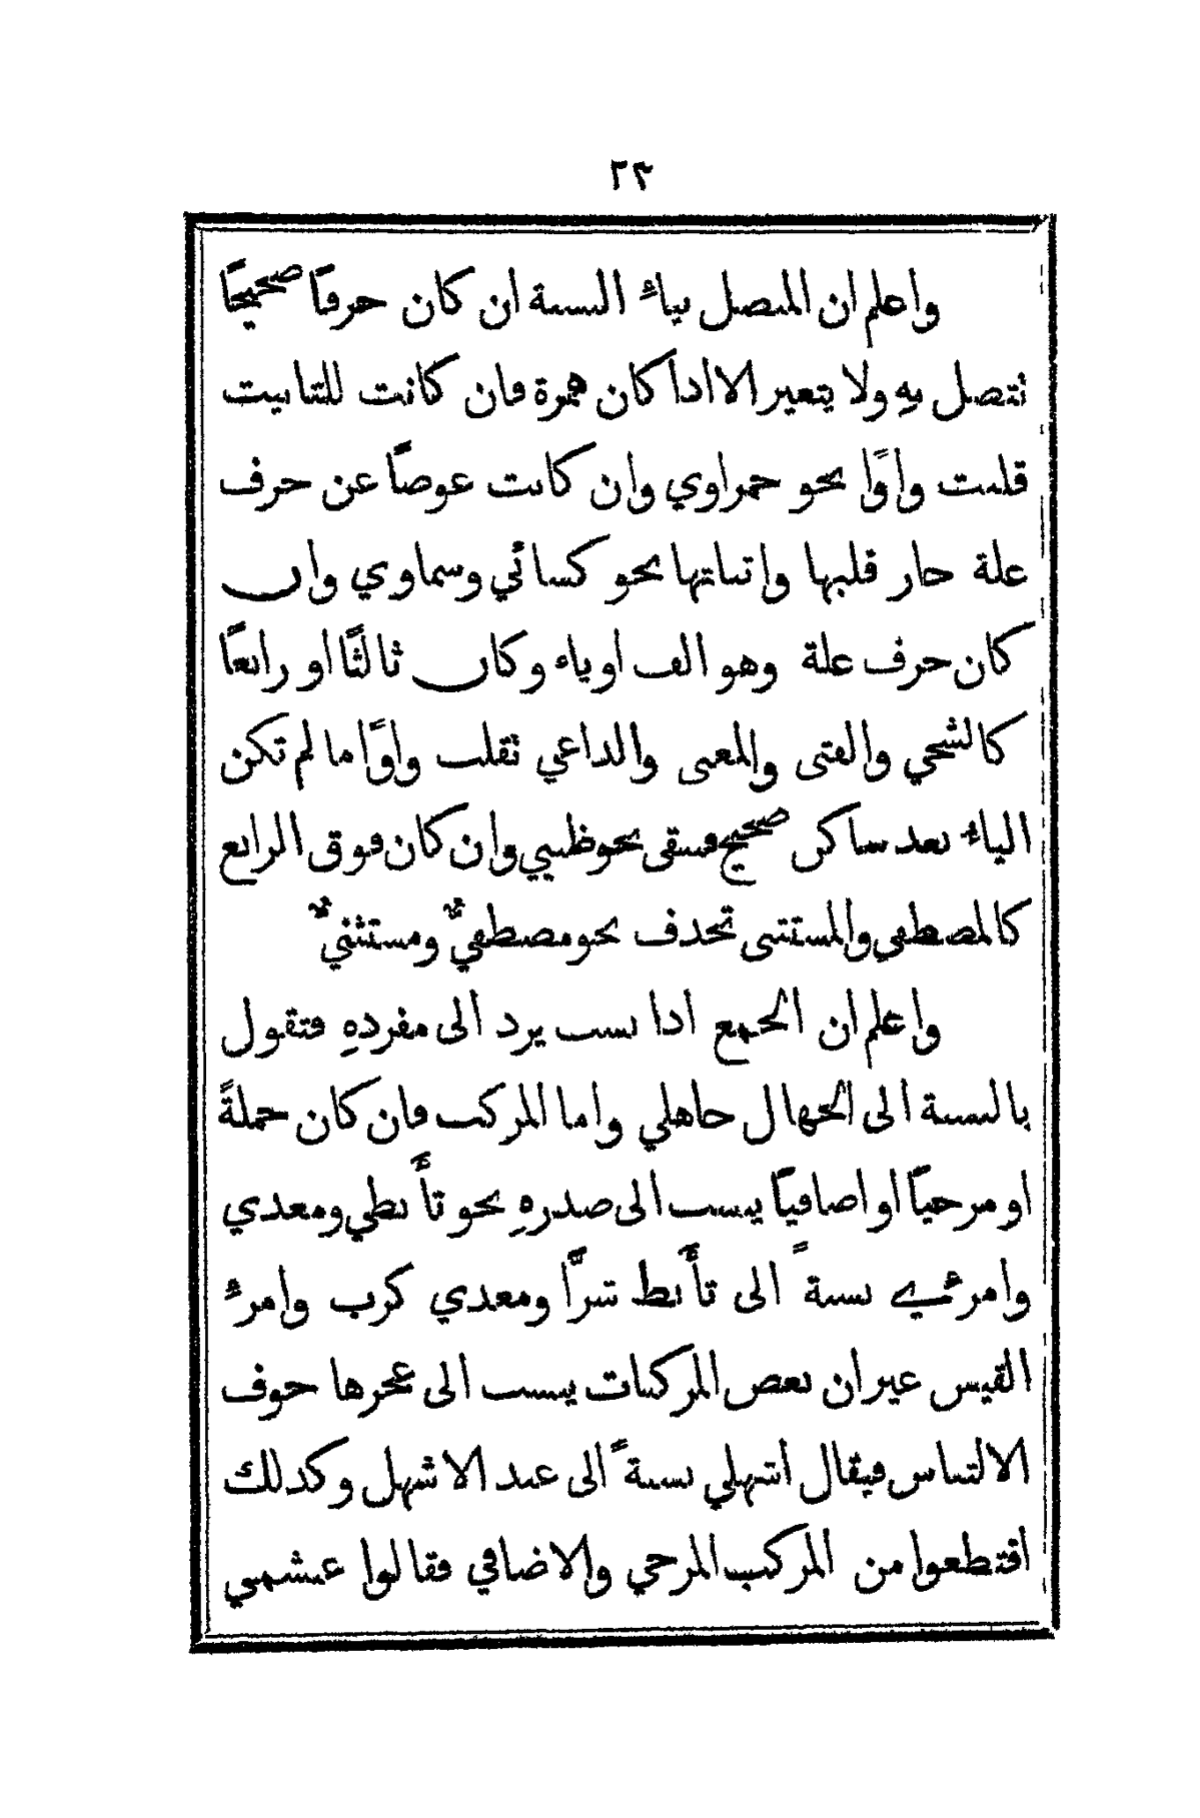 ٢٣
واعلم ان المتصل بياءِ النسبة ان كان حرفًا صحيحًا
تتصل بهِ ولا يتغير الا اذا كان همزة فان كانت للتانيث
قلبت واوًا نحو حمراوي وان كانت عوضًا عن حرف
علة جاز قلبها واثباتها نحو كسائي وسماوي وان
كان حرف علة وهو الف او ياء وكان ثالثًا او رابعًا
كالشجي والفتى والمعنى والداعي تقلب واوًا ما لم تكن
الياءُ بعد ساكن صحيح فتبقى نحو ظبيي وان كان فوق الرابع
كالمصطفى والمستثنى تحذف نحو مصطفيٌّ ومستثنيٌّ
واعلم ان الجمع اذا نسب يرد الى مفردهِ فتقول
بالنسبة الى الجهال جاهلي واما المركب فان كان جملةً
او مزجيًا او اضافيًا ينسب الى صدرهِ نحو تأَبطي ومعدي
وامرءي نسبةً الى تأَبط شرًّا ومعدي كرب وامرءِ
القيس غير ان بعض المركبات ينسب الى عجزها خوف
الالتباس فيقال اشهلي نسبةً الى عبد الاشهل وكذلك
اقتطعوا من المركب المزجي والاضافي فقالوا عبشمي